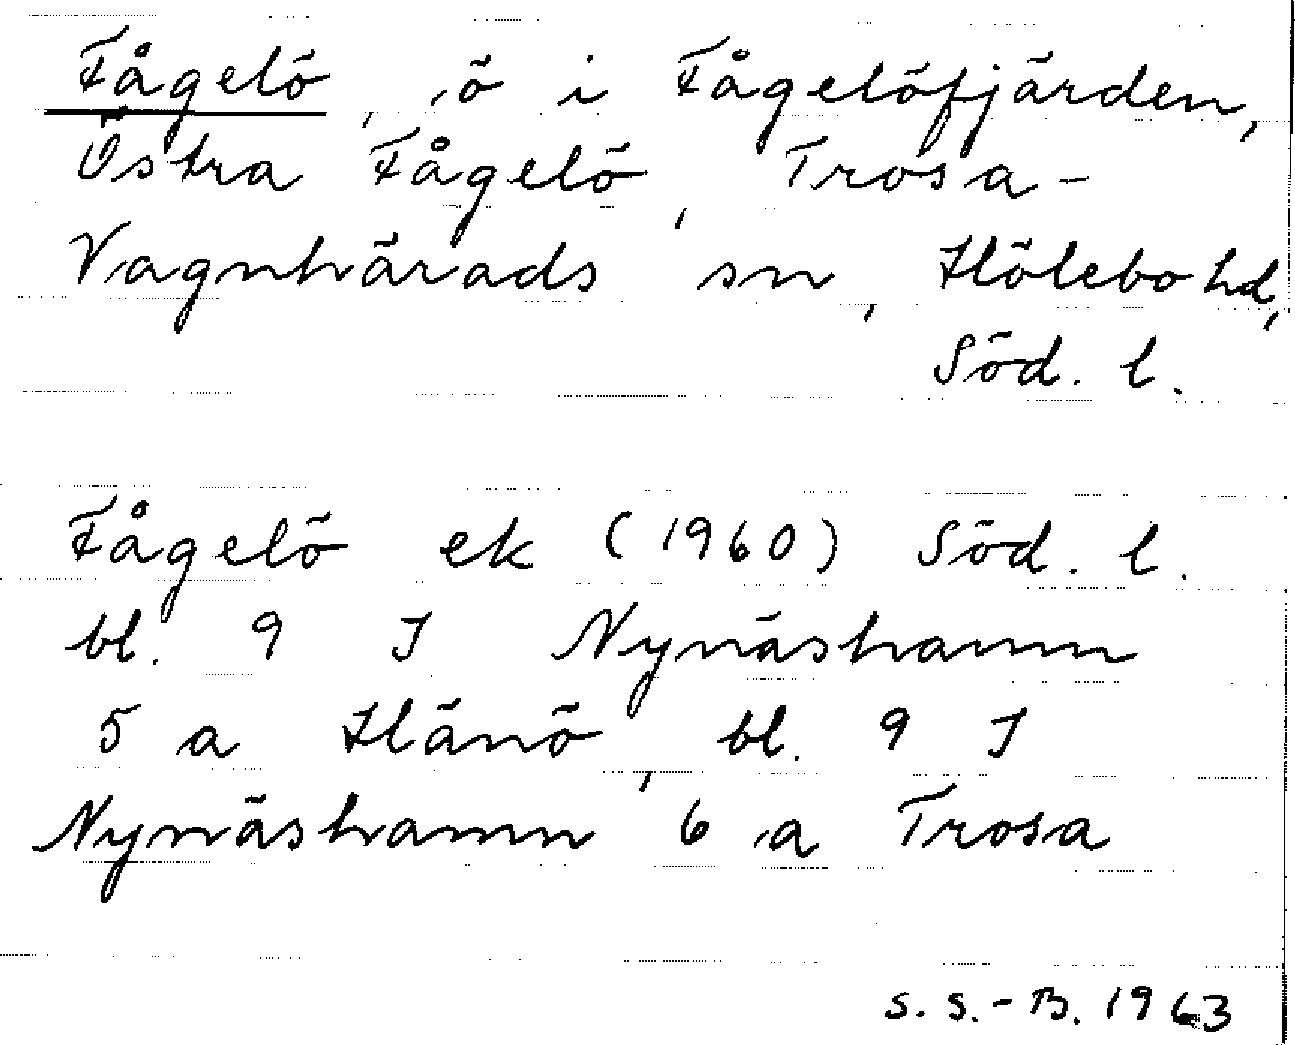 Fågelö, ö i Fågelöfjärden,
Östra Fågelö, Trosa-
Vagnhärads sn, Hölebo hd,
Söd. l.
Fågelö ek (1960) Söd. l.
bl. 9 I Nynäshamn
5 a Hånö, bl. 9 I
Nynäshamn 6 a Trosa
S. S.-B. 1963